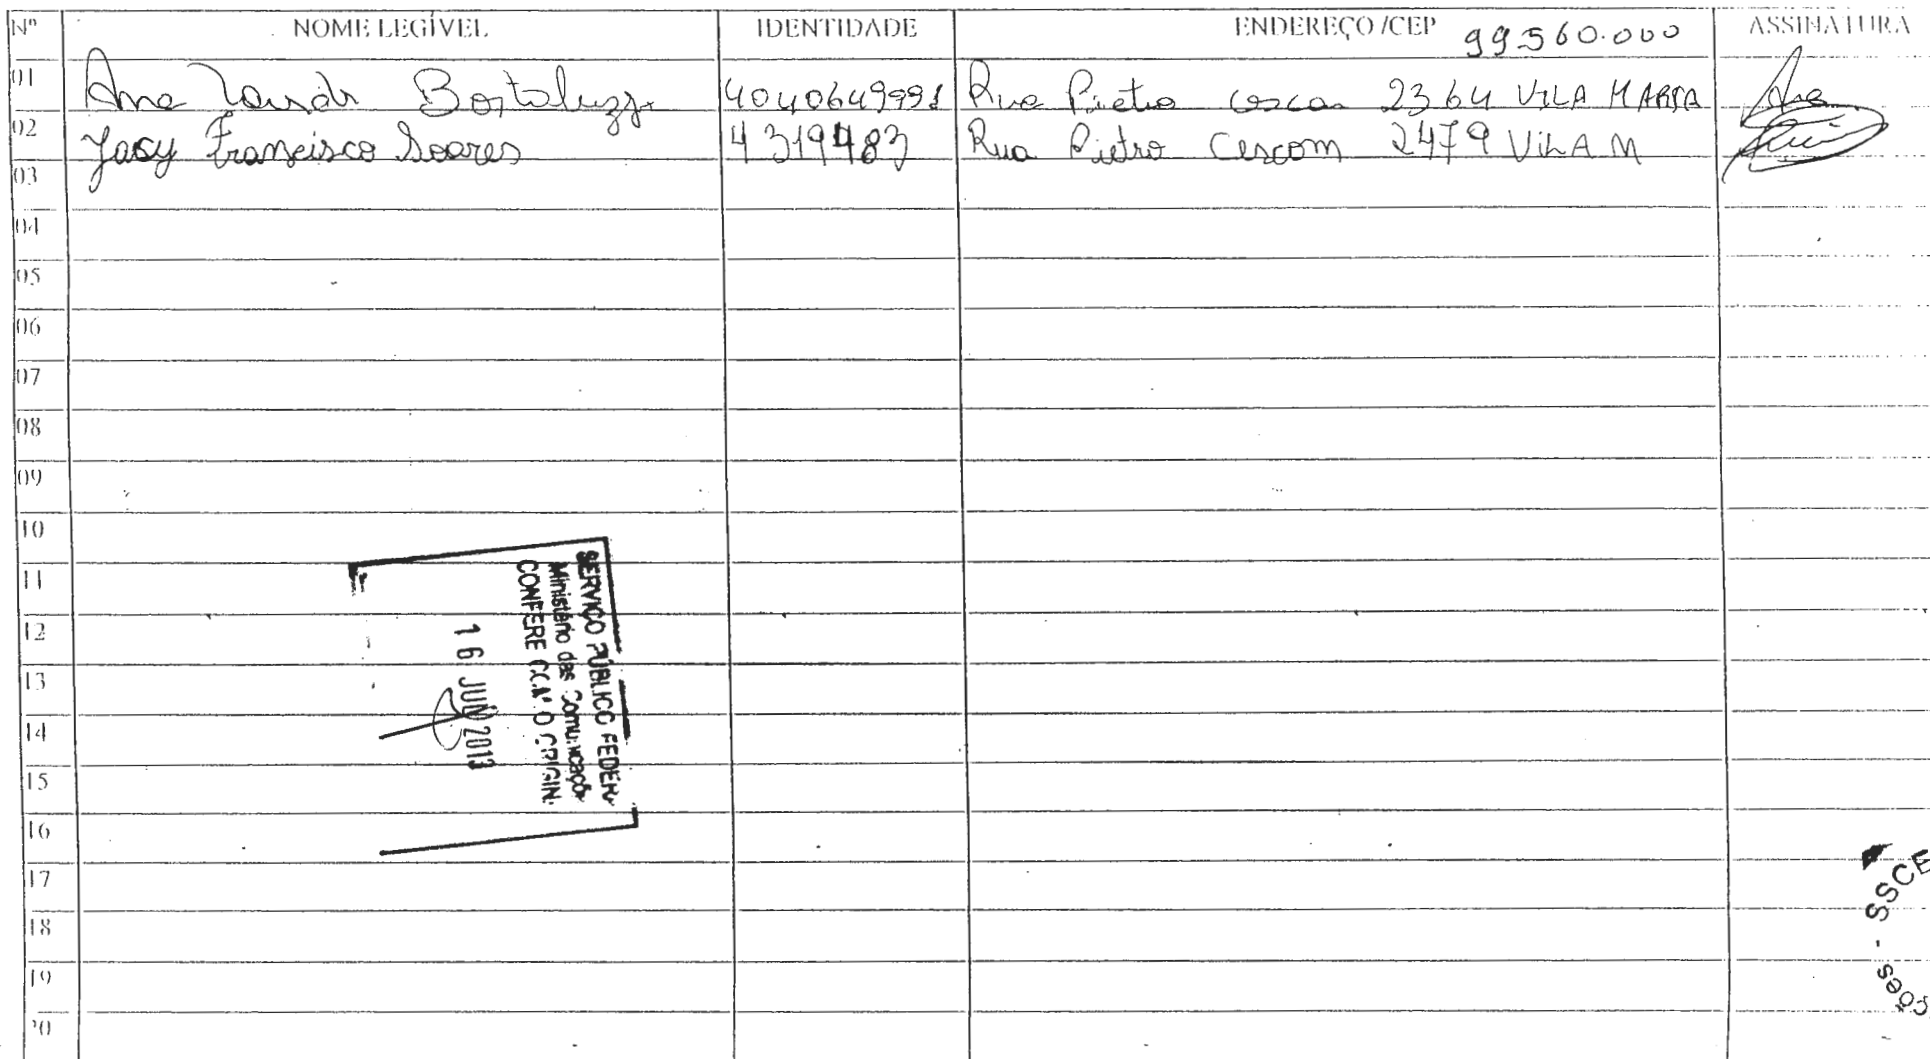 Nº NOME LEGÍVEL IDENTIDADE ENDEREÇO/CEP 99560.000 ASSINATURA
01 Ana Bortoluzzi 4040649991 Rua Pietro cescon 2364 VILA MARIA Ana
02 Jacy Francisco Soares 4319483 Rua Pietro Cescom 2479 VILA M
03
04
05
06
07
08
09
10
11
12
13
14
15
16
17
18
19
20
SERVIÇO PÚBLICO FEDER
Ministério das Comunicaçõ
CONFERE COM O ORIGIN
16 JUN 2013
SSCE
ções -